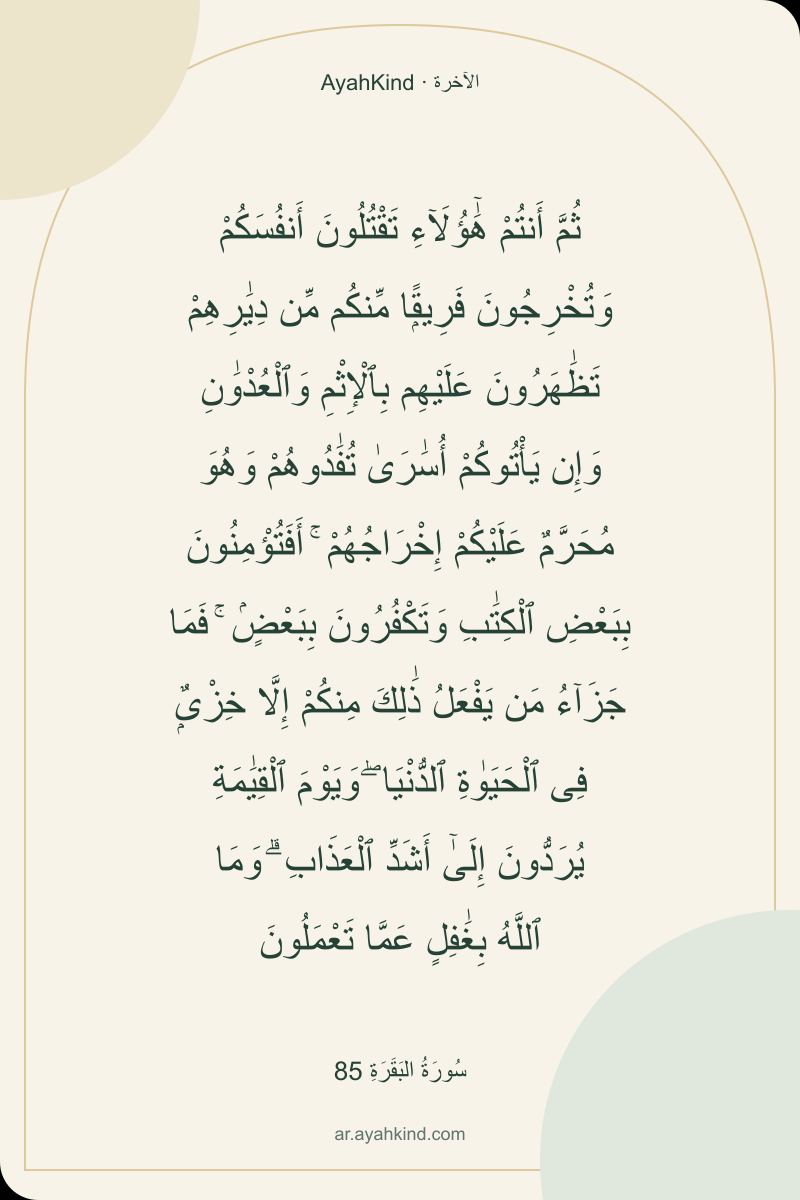 AyahKind · الآخرة
ثُمَّ أَنتُمْ هَٰٓؤُلَآءِ تَقْتُلُونَ أَنفُسَكُمْ
وَتُخْرِجُونَ فَرِيقًۭا مِّنكُم مِّن دِيَٰرِهِمْ
تَظَٰهَرُونَ عَلَيْهِم بِٱلْإِثْمِ وَٱلْعُدْوَٰنِ
وَإِن يَأْتُوكُمْ أُسَٰرَىٰ تُفَٰدُوهُمْ وَهُوَ
مُحَرَّمٌ عَلَيْكُمْ إِخْرَاجُهُمْ ۚ أَفَتُؤْمِنُونَ
بِبَعْضِ ٱلْكِتَٰبِ وَتَكْفُرُونَ بِبَعْضٍۢ ۚ فَمَا
جَزَآءُ مَن يَفْعَلُ ذَٰلِكَ مِنكُمْ إِلَّا خِزْىٌۭ
فِى ٱلْحَيَوٰةِ ٱلدُّنْيَا ۖ وَيَوْمَ ٱلْقِيَٰمَةِ
يُرَدُّونَ إِلَىٰٓ أَشَدِّ ٱلْعَذَابِ ۗ وَمَا
ٱللَّهُ بِغَٰفِلٍ عَمَّا تَعْمَلُونَ
سُورَةُ البَقَرَةِ 85
ar.ayahkind.com